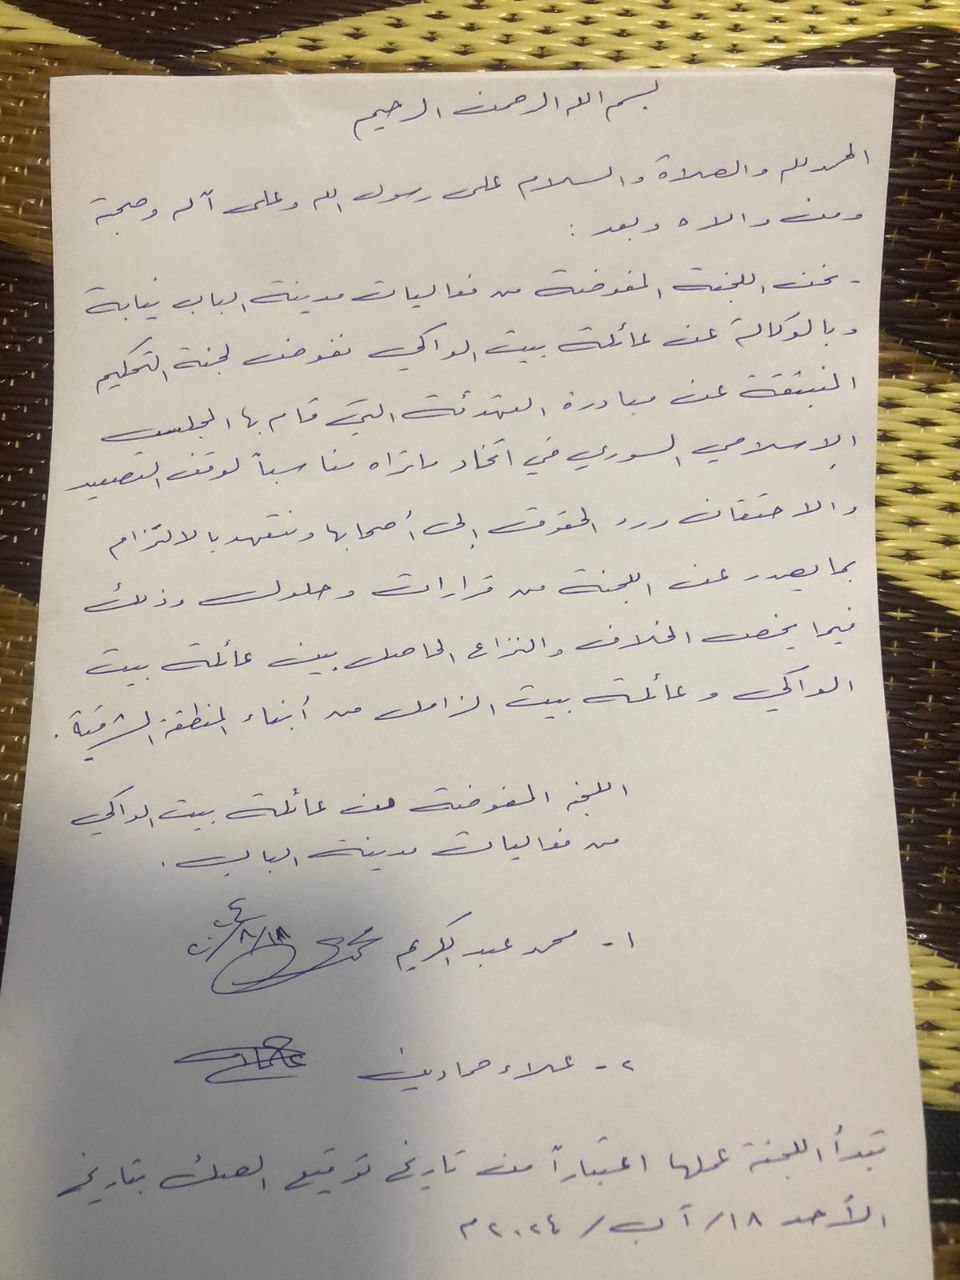 بسم الله الرحمن الرحيم
الحمد لله والصلاة والسلام على رسول الله وعلى آله وصحبة
ومن والاه وبعد :
- نحن اللجنة المفوضة من فعاليات مدينة الباب نيابة
وبالوكالة عن عائلة بيت الواكي نفوض لجنة التحكيم
المنبثقة عن مبادرة التهدئة التي قام بها المجلس
الإسلامي السوري في اتخاذ ماتراه مناسباً لوقف التصعيد
والاحتقان ورد الحقوق إلى أصحابها ونتعهد بالالتزام
بما يصدر عن اللجنة من قرارات وحلول وذلك
فيما يخص الخلاف والنزاع الحاصل بين عائلة بيت
الواكي وعائلة بيت الزامل من أبناء المنطقة الشرقية .
اللجنة المفوضة عن عائلة بيت الواكي
من فعاليات مدينة الباب .
١- محمد عبد الكريم ١٨/٨/٢٠٢٤
٢- علاء حمادين
تبدأ اللجنة عملها اعتباراً من تاريخ توقيع الصك بتاريخ
الأحد ١٨/ آب / ٢٠٢٤ م